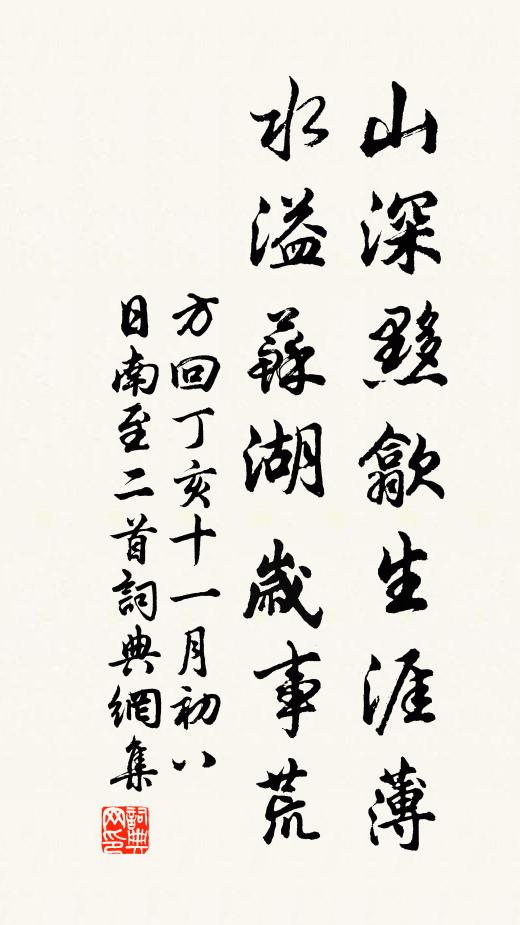 山深黟歙生涯薄
水溢蘇湖歲事荒
方回丁亥十一月初八
日南至二首詞典網集
詞典网印